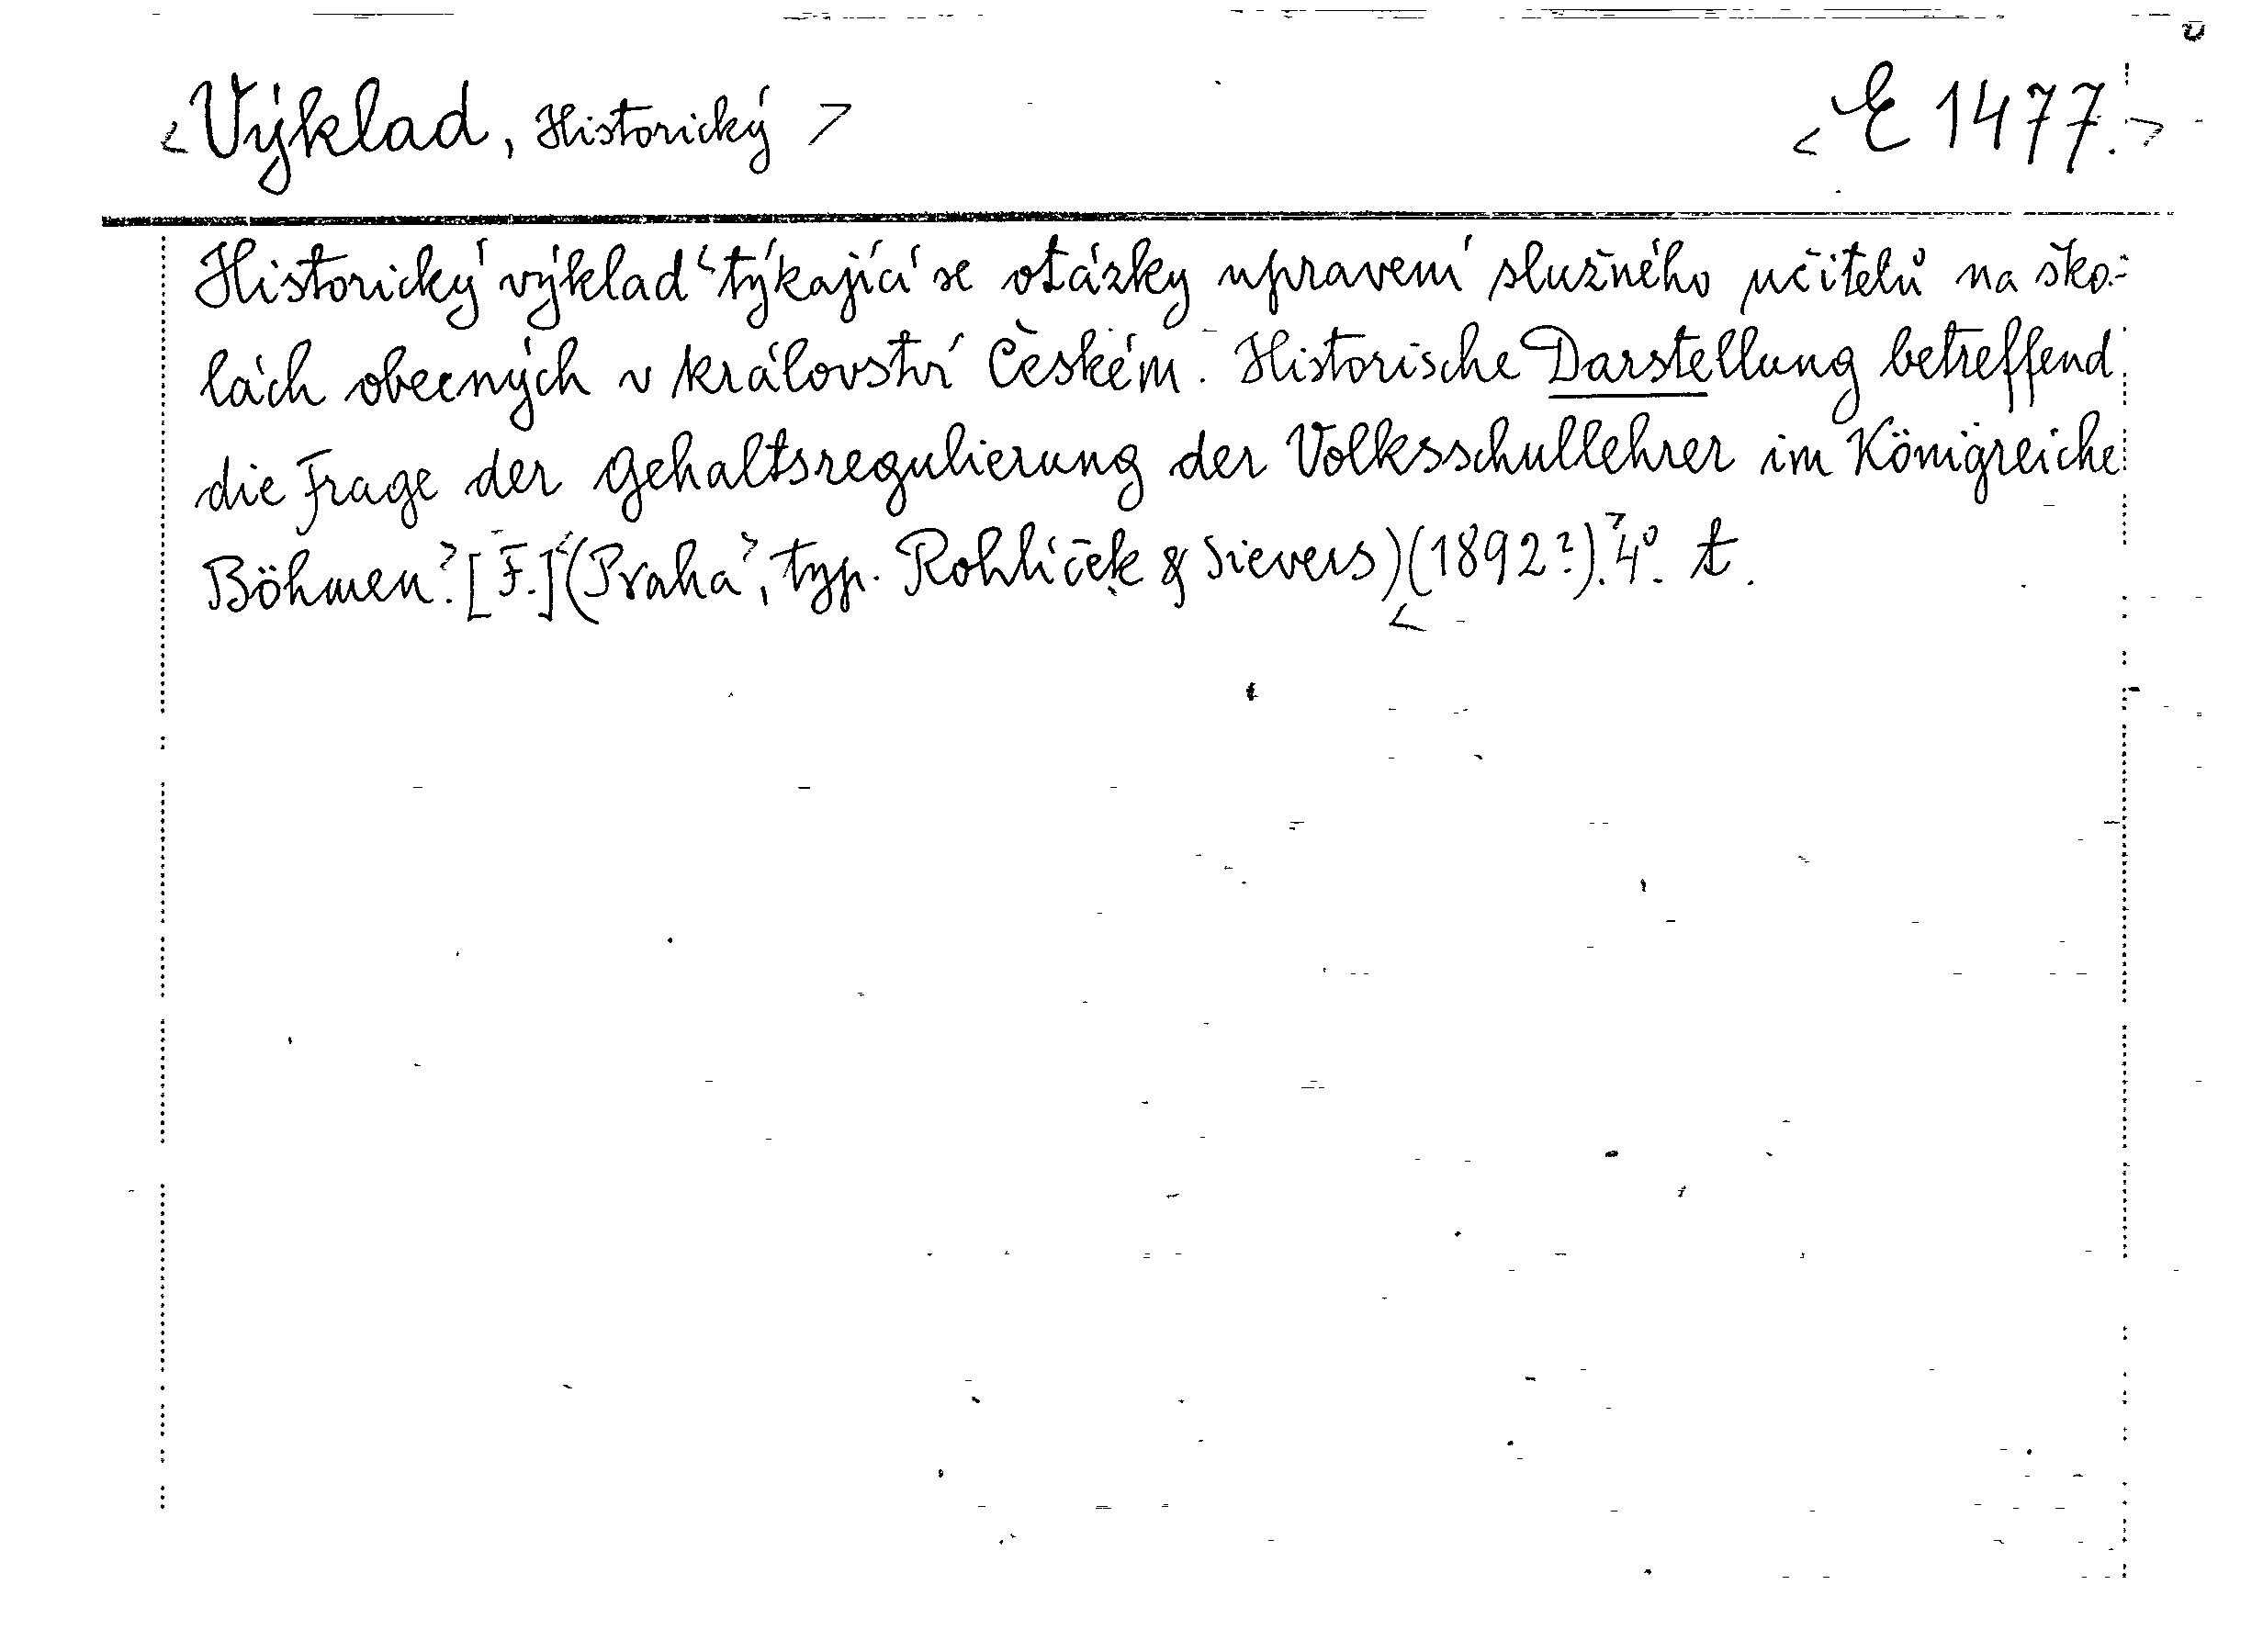 <Výklad, Historický> <E 1477.>
Historický výklad <týkající se otázky upravení služného učitelů na ško-
lách obecných v království Českém. Historische Darstellung betreffend
die Frage der Gehaltsregulierung der Volksschullehrer im Königreiche
Böhmen>. [F.] <(Praha>, typ. Rohlíček & Sievers) <(1892?).> 4°. t.